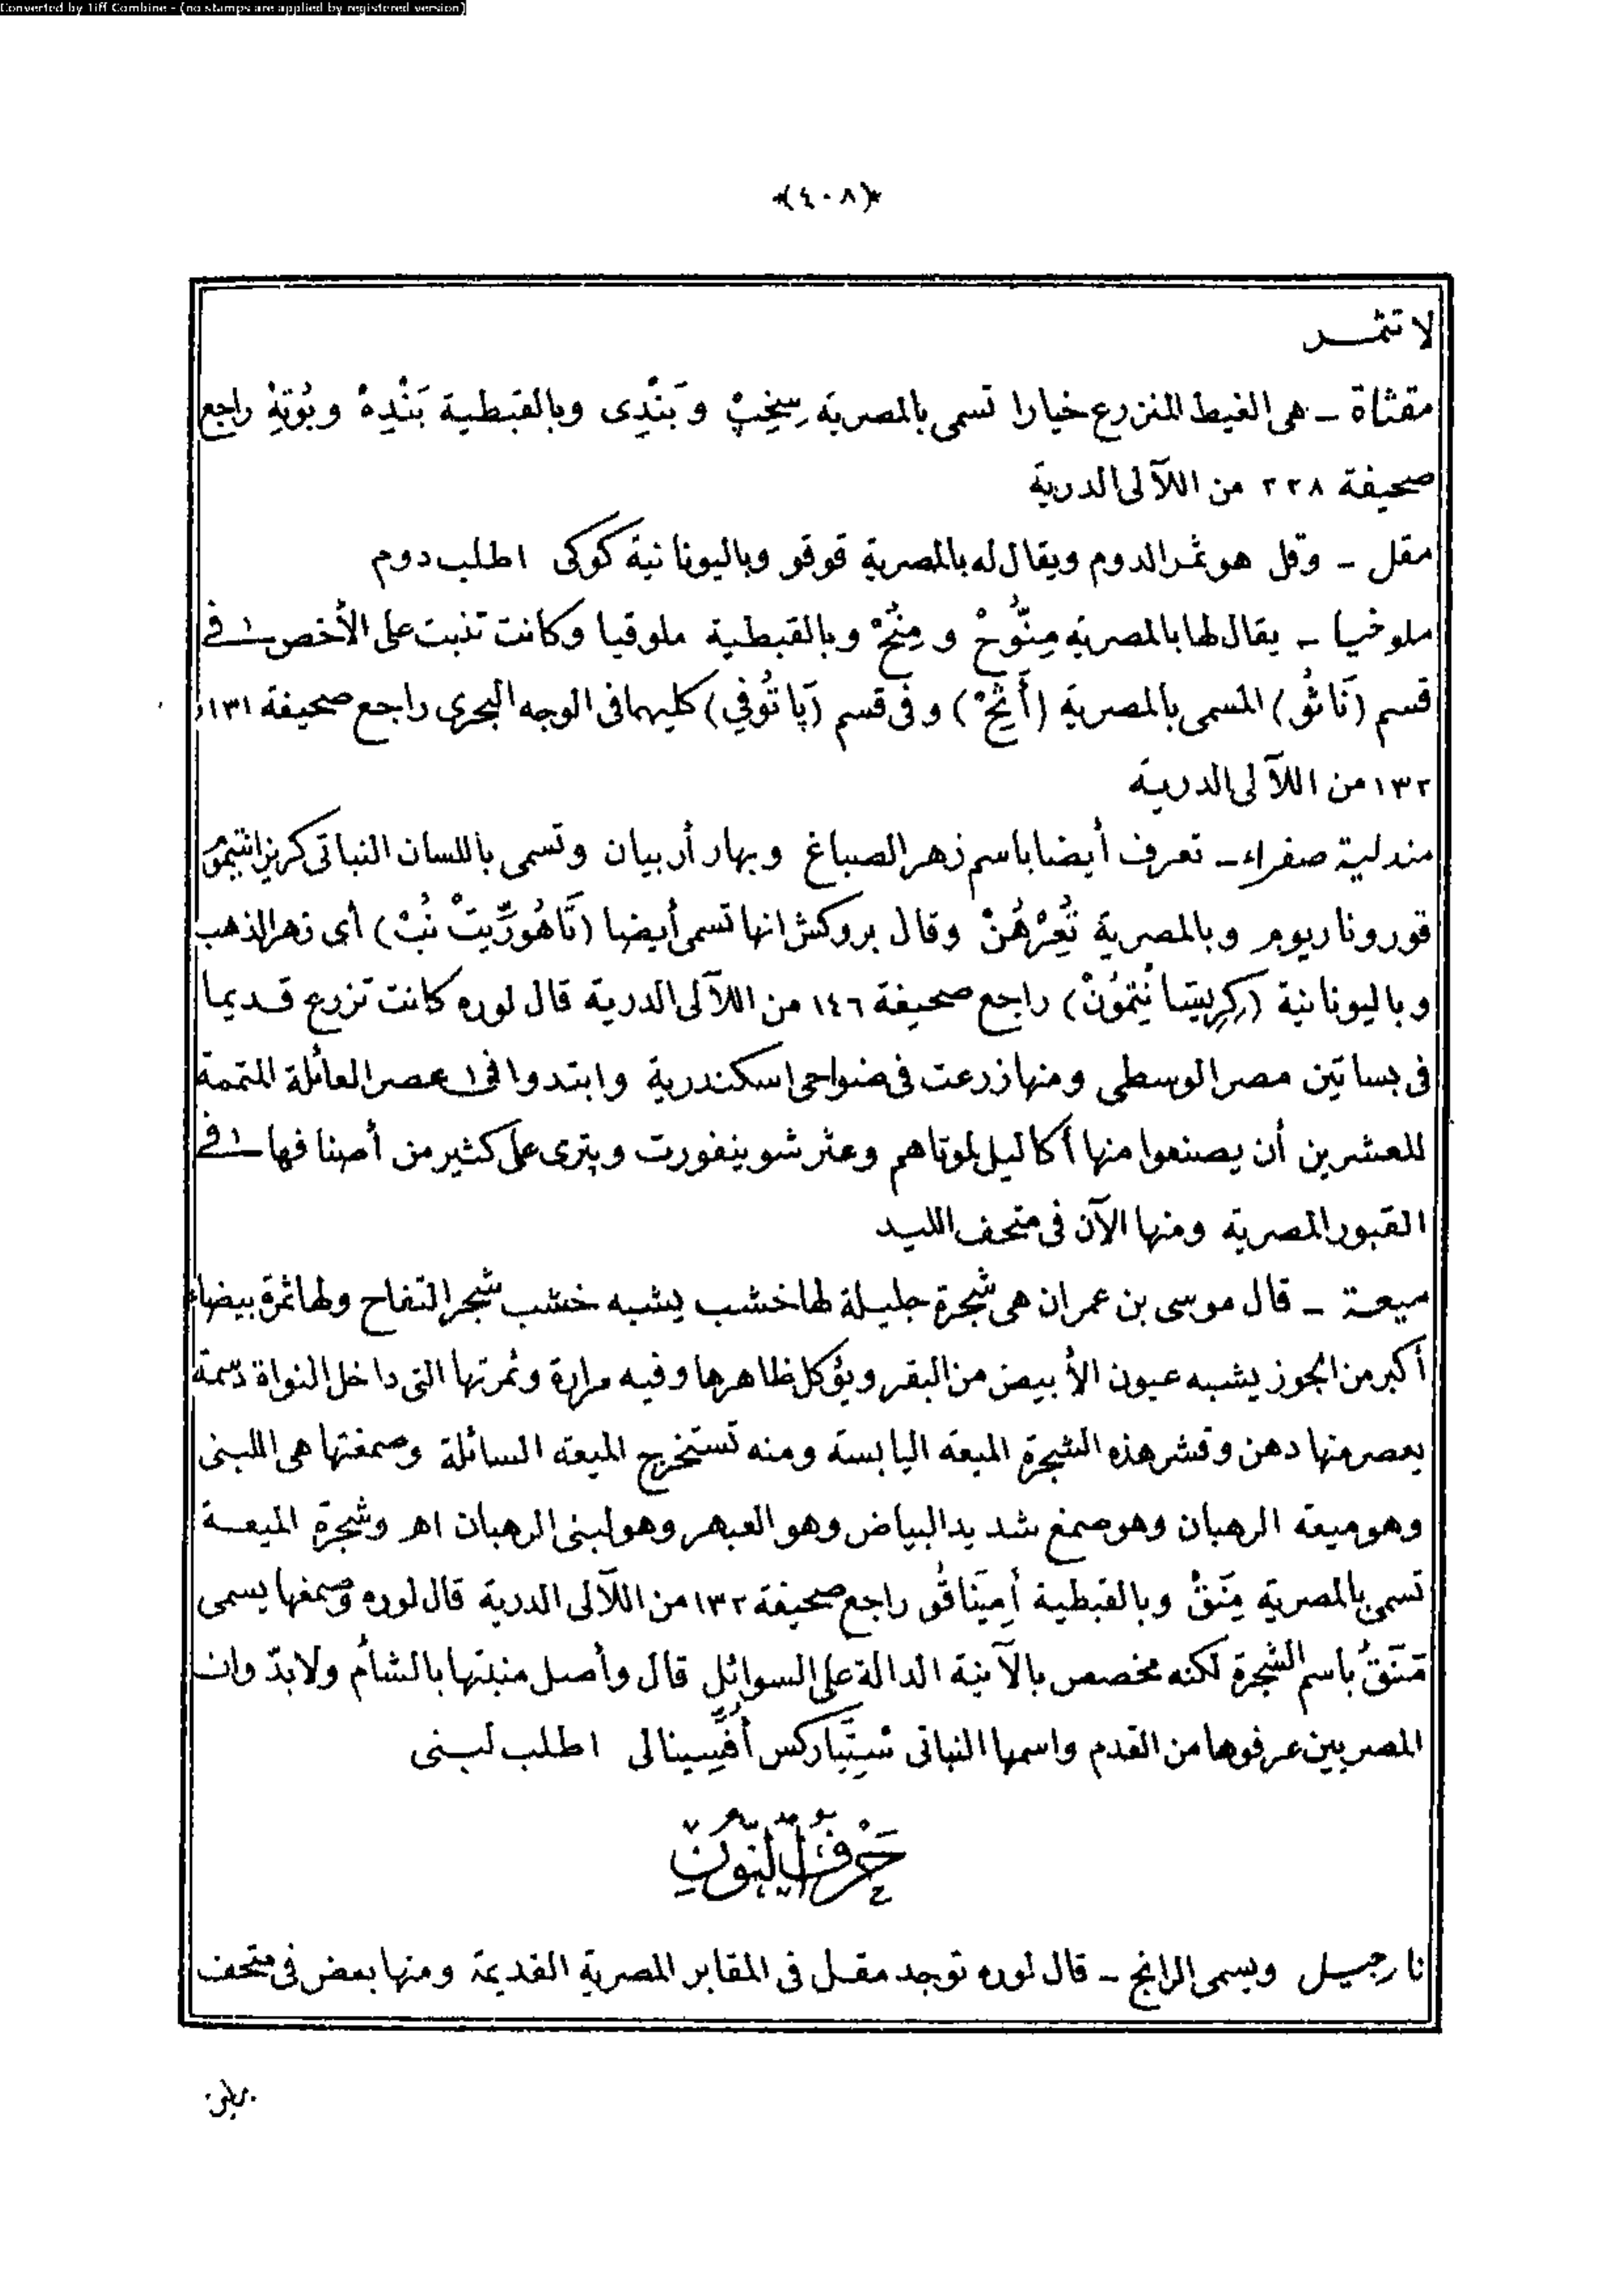 Converted by Tiff Combine - (no stamps are applied by registered version)
﴿٤٠٨﴾
لا تثمر
مقثاة ـ هى الغيط المنزرع خيارا تسمى بالمصرية سِخِبْ وبَنْدِى وبالقبطية بَنْدِهْ وبُوتِهْ راجع
صحيفة ٢٢٨ من اللآلى الدرية
مقل ـ وقل هو ثمر الدوم ويقال له بالمصرية قوقو وباليونانية كوكى اطلب دوم
ملوخيا ـ يقال لها بالمصرية مِنُّوحْ و مِنُحْ وبالقبطية ملوقيا وكانت تنبت على الأخص فى
قسم (نَاثُو) المسمى بالمصرية (أَثِحْ) وفى قسم (پَاتُوفِي) كليهما فى الوجه البحرى راجع صحيفة ١٣١ و
١٣٢ من اللآلى الدرية
مندلية صفراء ـ تعرف أيضا باسم زهر الصباغ وبهار أربيان وتسمى باللسان النباتى كريزانتيمو
قوروناريوم وبالمصرية تُعِرْهُنْ وقال بروكش انها تسمى أيضا (تَاهُورِّيتْ نُبْ) أى زهر الذهب
وباليونانية (كِرِيسَانْتِمُونْ) راجع صحيفة ١٤٦ من اللآلى الدرية قال لوره كانت تزرع قديما
فى بساتين مصر الوسطى ومنها زرعت فى ضواحى اسكندرية وابتدوا فى عصر العائلة المتممة
للعشرين أن يصنعوا منها أكاليل لموتاهم وعثر شوينفورت وپترى على كثير من أصنافها فى
القبور المصرية ومنها الآن فى متحف الليد
ميعة ـ قال موسى بن عمران هى شجرة جليلة لها خشب يشبه خشب شجر التفاح ولها ثمرة بيضاء
أكبر من الجوز يشبه عيون الأبيض من البقر ويؤكل ظاهرها وفيه مرارة وثمرتها التى داخل النواة دسمة
يعصر منها دهن وقشر هذه الشجرة الميعة اليابسة ومنه تستخرج الميعة السائلة وصمغتها هى اللبنى
وهو ميعة الرهبان وهو صمغ شديد البياض وهو العبهر وهو لبنى الرهبان اهـ وشجرة الميعة
تسمى بالمصرية مِنَقْ وبالقبطية أمِينَاقُو راجع صحيفة ١٣٢ من اللآلى الدرية قال لوره وصمغها يسمى
مَنَقُ باسم الشجرة لكنه مخصص بالآنية الدالة على السوائل قال وأصل منبتها بالشأم ولابدّ وان
المصريين عرفوها من القدم واسمها النباتى ستيراكس أفِّيسينالى اطلب لبنى
حَرْفُ النُّونِ
نارجيل ويسمى الرانج ـ قال لوره توجد مقل فى المقابر المصرية القديمة ومنها بعض فى متحف